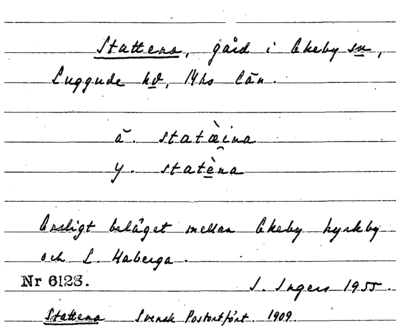 Stattena, gård i Ekeby sn,
Luggude hd, Mhs län.
ä. statàina
y. statèna
Ensligt beläget mellan Ekeby kyrkby
och L. Haberga.
Nr 6128. I. Ingers 1955.
Stattena Svensk Postortfört. 1909.